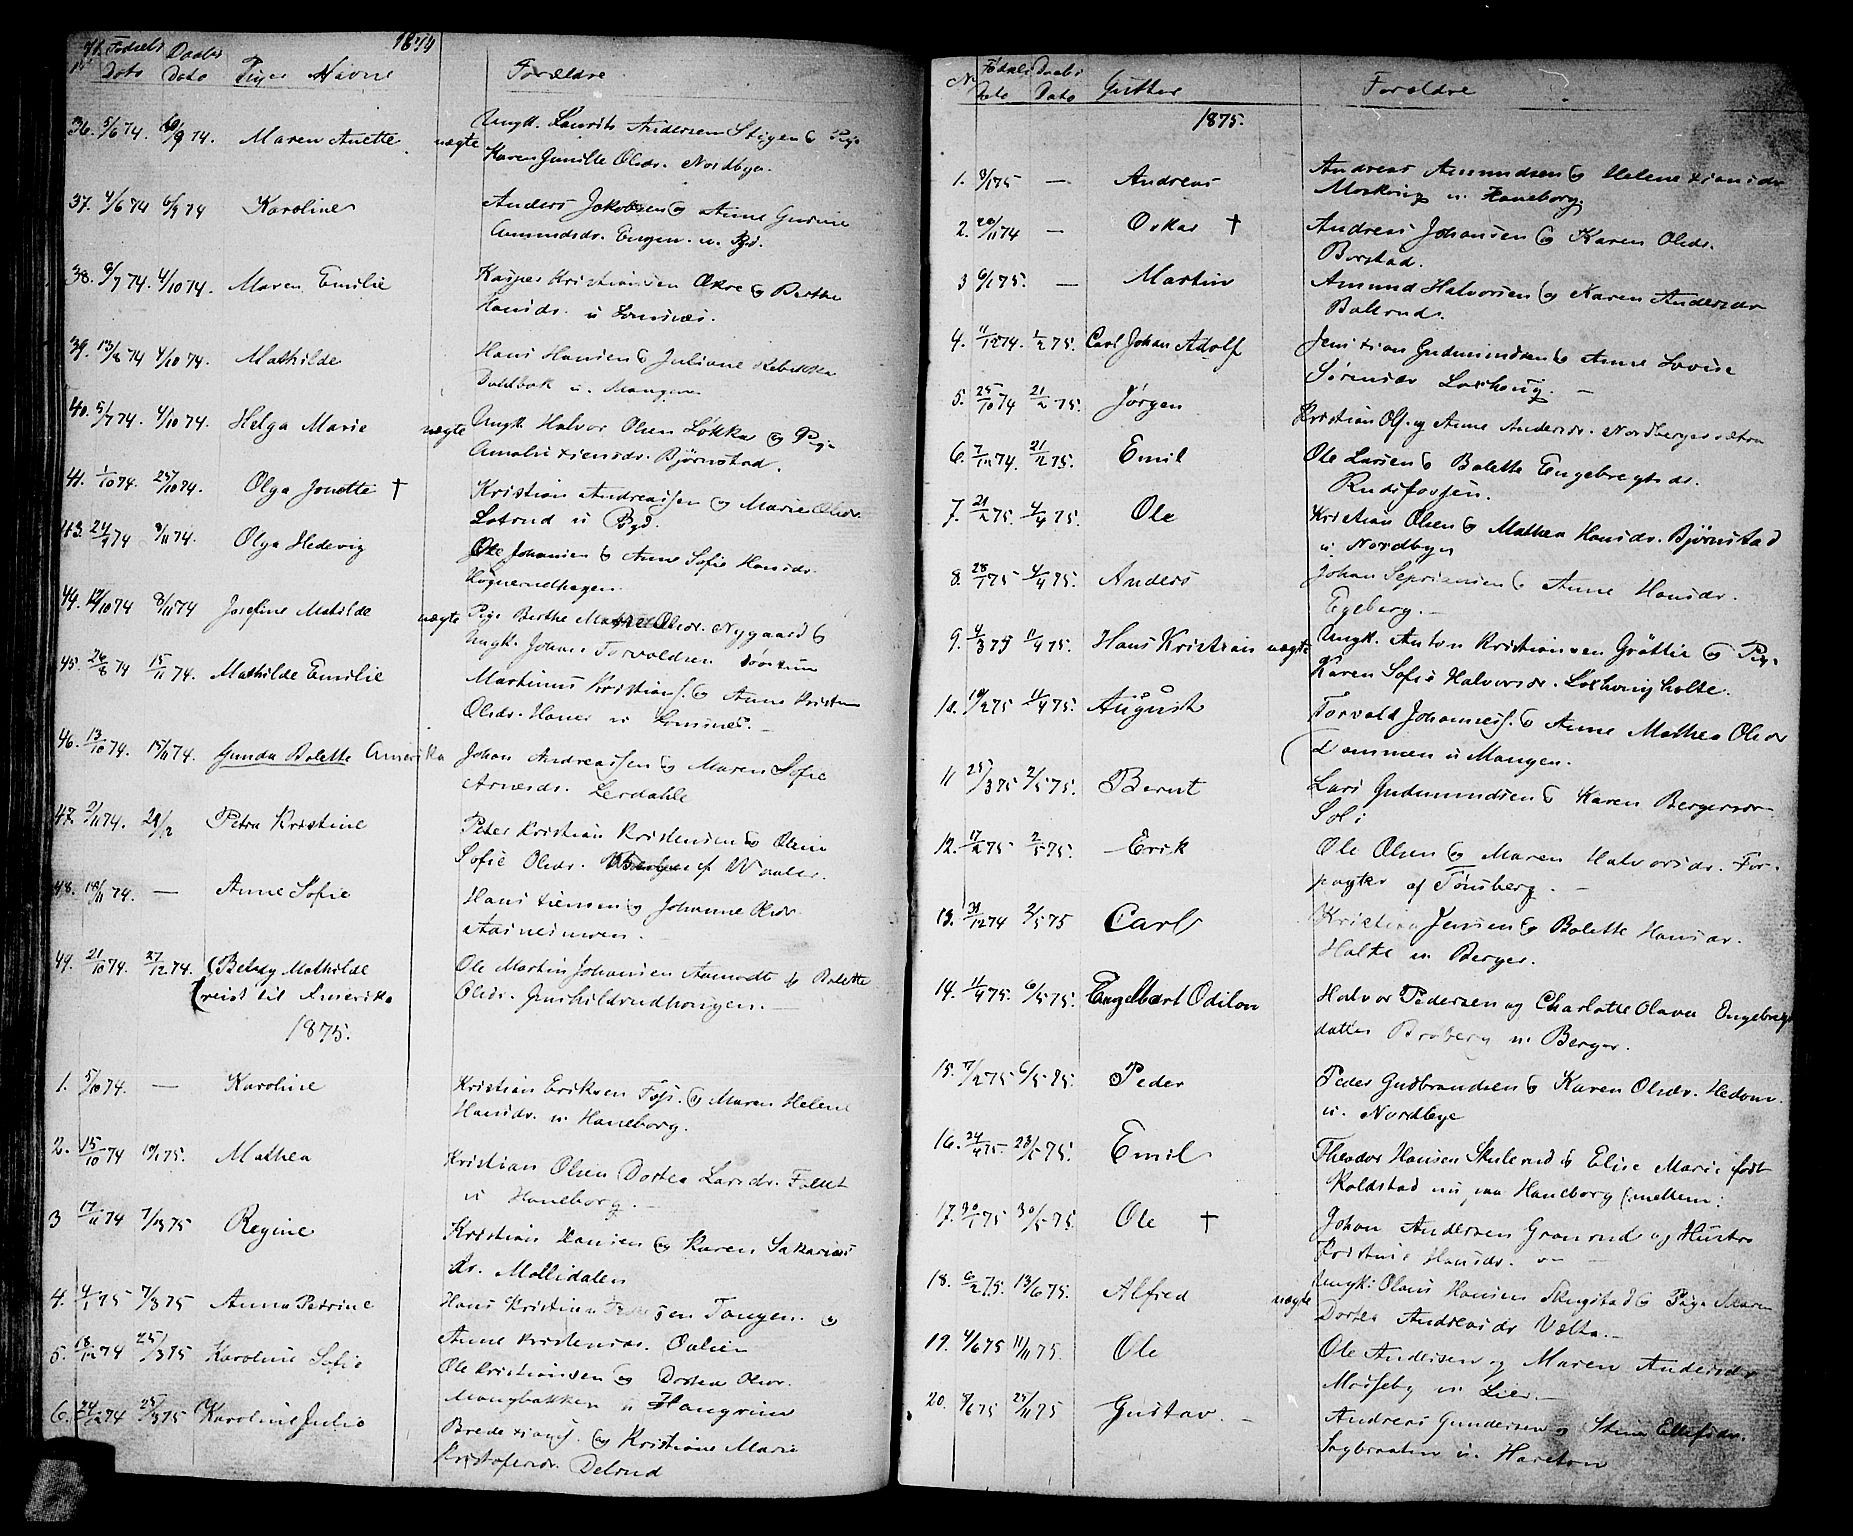 1874
No Fødsels Dato Daabs Dato Piger Navne Forældre
36. 5/6 74. 6/9 74. Maren Anette uægte Ungk. Laurits Andersen Stigen og Pige
Karen Gunille Olsdr. Nordbyen.
37. 4/6 74 6/9 74 Karoline Anders Jakobsen og Anne Gurine
Amundsdr. Engen u. Bjd.
38. 9/7 74. 4/10 74. Maren Emilie Kasper Kristiansen Økre og Berthe
Hansdr. u
39. 13/8 74 4/10 74. Mathilde Hans Hansen og Juliane Rebekka
Dahlbak u. Mangen
40. 5/7 74. 4/10 74. Helga Marie uægte Ungk. Halvor Olsen Løkka og Pige
Amalie xiensdr. Bjørnstad.
41. 1/10 74. 25/10 74. Olga Jonette † Kristian Andreassen og Marie Olsdr.
u Bjd.
43. 24/9 74 8/11 74. Olga Hedevig Ole Johansen og Anne Sofie Hansdr.
44. 12/10 74 8/11 74 Josefine Matilde uægte Pige Berthe Olsdr. Nygaard og
Ungk. Johan Torvaldsen
45. 26/8 74 15/11 74. Mathilde Emilie Martinus Kristians. og Anne Kristine
Olsdr. u
46. 13/10 74. 15/11 74. Gunda Bolette Amerika Johan Andreassen og Maren Sofie
Arnesdr. Lerdahle
47. 2/11 74. 29/12 Petra Kristine Peter Kristian Kristensen og Oline
Sofie Olsdr. af Waaler.
48. 18/11 74. — Anne Sofie Hans xiensen og Johanne Olsdr.
49. 21/10 74. 27/12 74. (Betsey Mathilde Ole Martin Johansen Aamodt og Bolette
(reist til Amerika Olsdr. Gunhildrudhaugen. —
1875.
1. 5/10 74. — Karoline Kristian Eriksen Foss. og Maren Helene
Hansdr. u Haneborg.
2. 15/10 74 10/1 75. Mathea Kristian Olsen Dortea Larsdr. Fallet
u Haneborg. —
3 17/11 74 7/3 75 Regine Kristian Hansen og Karen Sakarias
dr. Mollidalen
4. 4/1 75 7/3 75 Anna Petrine Hans Kristian sen Tangen. og
Anne Kristensdr.
5. 18/12 74 25/3 75 Karoline Sofie Ole Kristiansen og Dortea Olsdr.
Mangbakken u
6. 24/12 74 25/3 75 Karoline Julie Brede xians. og Kristiane Marie
Kristofersdr. Delrud
N Fødsels Dato Daabs Dato Gutter Forældre
1875.
1. 8/1 75 — Andreas Andreas Amundsen og Helene xiansdr
u. Haneborg.
2. 20/11 74 — Oskar † Andreas Johansen og Karen Olsdr.
Borstad.
3 6/1 75. — Martin Amund Halvorsen og Karen Andersdr
4. 11/12 74. 1/2 75. Carl Johan Adolf Jens xian Gudmundsen og Anne Lovise
Sørensdr Løshaug. —
5. 25/10 74 21/2 75. Jørgen Kristian Ols. og Anne Andersdr. Nordbergsætra
6. 7/12 74. 21/2 75. Emil Ole Larsen og Bolette Engebregtsdr.
Rudsfossen.
7. 21/2 75. 4/4 75. Ole Kristian Olsen og Mathea Hansdr. Bjørnstad
u. Nordbyen
8. 28/1 75 4/4 75. Anders Johan og Anne Hansdr.
Egeberg. —
9. 4/3 75 11/4 75. Hans Kristian uægte Ungk. Anton Kristiansen Grøttie og Pige
Karen Sofie Halvorsdr. Løshaugholte.
10. 10/2 75 11/4 75. August Torvald Johanness. og Anne Mathea Olsdr
u Mangen.
11 25/3 75 2/5 75. Bernt Lars Gudmundsen og Karen Bergersdr
12. 17/2 75 2/5 75. Erik Ole Olsen og Maren Halvorsdr. For-
pagter af Tønsberg. —
13. 31/12 74 2/5 75 Carl Jensen og Bolette Hansdr.
u Berger.
14. 11/4 75. 6/5 75. Engelbart Odilon Halvor Pedersen og Charlotte Olava Engebregt
datter Broberg u. Berger.
15. 7/2 75 6/5 75. Peder Peder Gudbrandsen og Karen Olsdr.
u. Nordbye
16. 24/4 75. 23/5 75. Emil Theodor Hansen Skulerud og Elise Marie født
Koldstad nu paa Haneborg (mellem:
17. 30/1 75 30/5 75. Ole † Johan Andersen Granrud og Hustro
Kristine Hansdr.
18. 6/2 75. 13/6 75. Alfred uægte Ungk: Olaus Hansen og Pige Maren
Dortea Andreasdr Vælta. —
19. 4/6 75 11/11 75. Ole Ole Andersen og Maren Andersdr
u Lier. —
20. 8/6 75 25/11 75 Gustav. — Andreas Gundersen og Stine Ellefsdr.
Sagbraaten u.